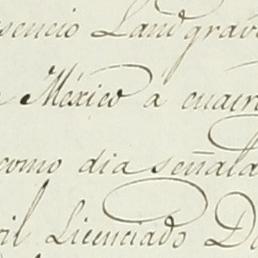 sencio Landgrav
México a cuatro
como dia señala
il Licenciado D